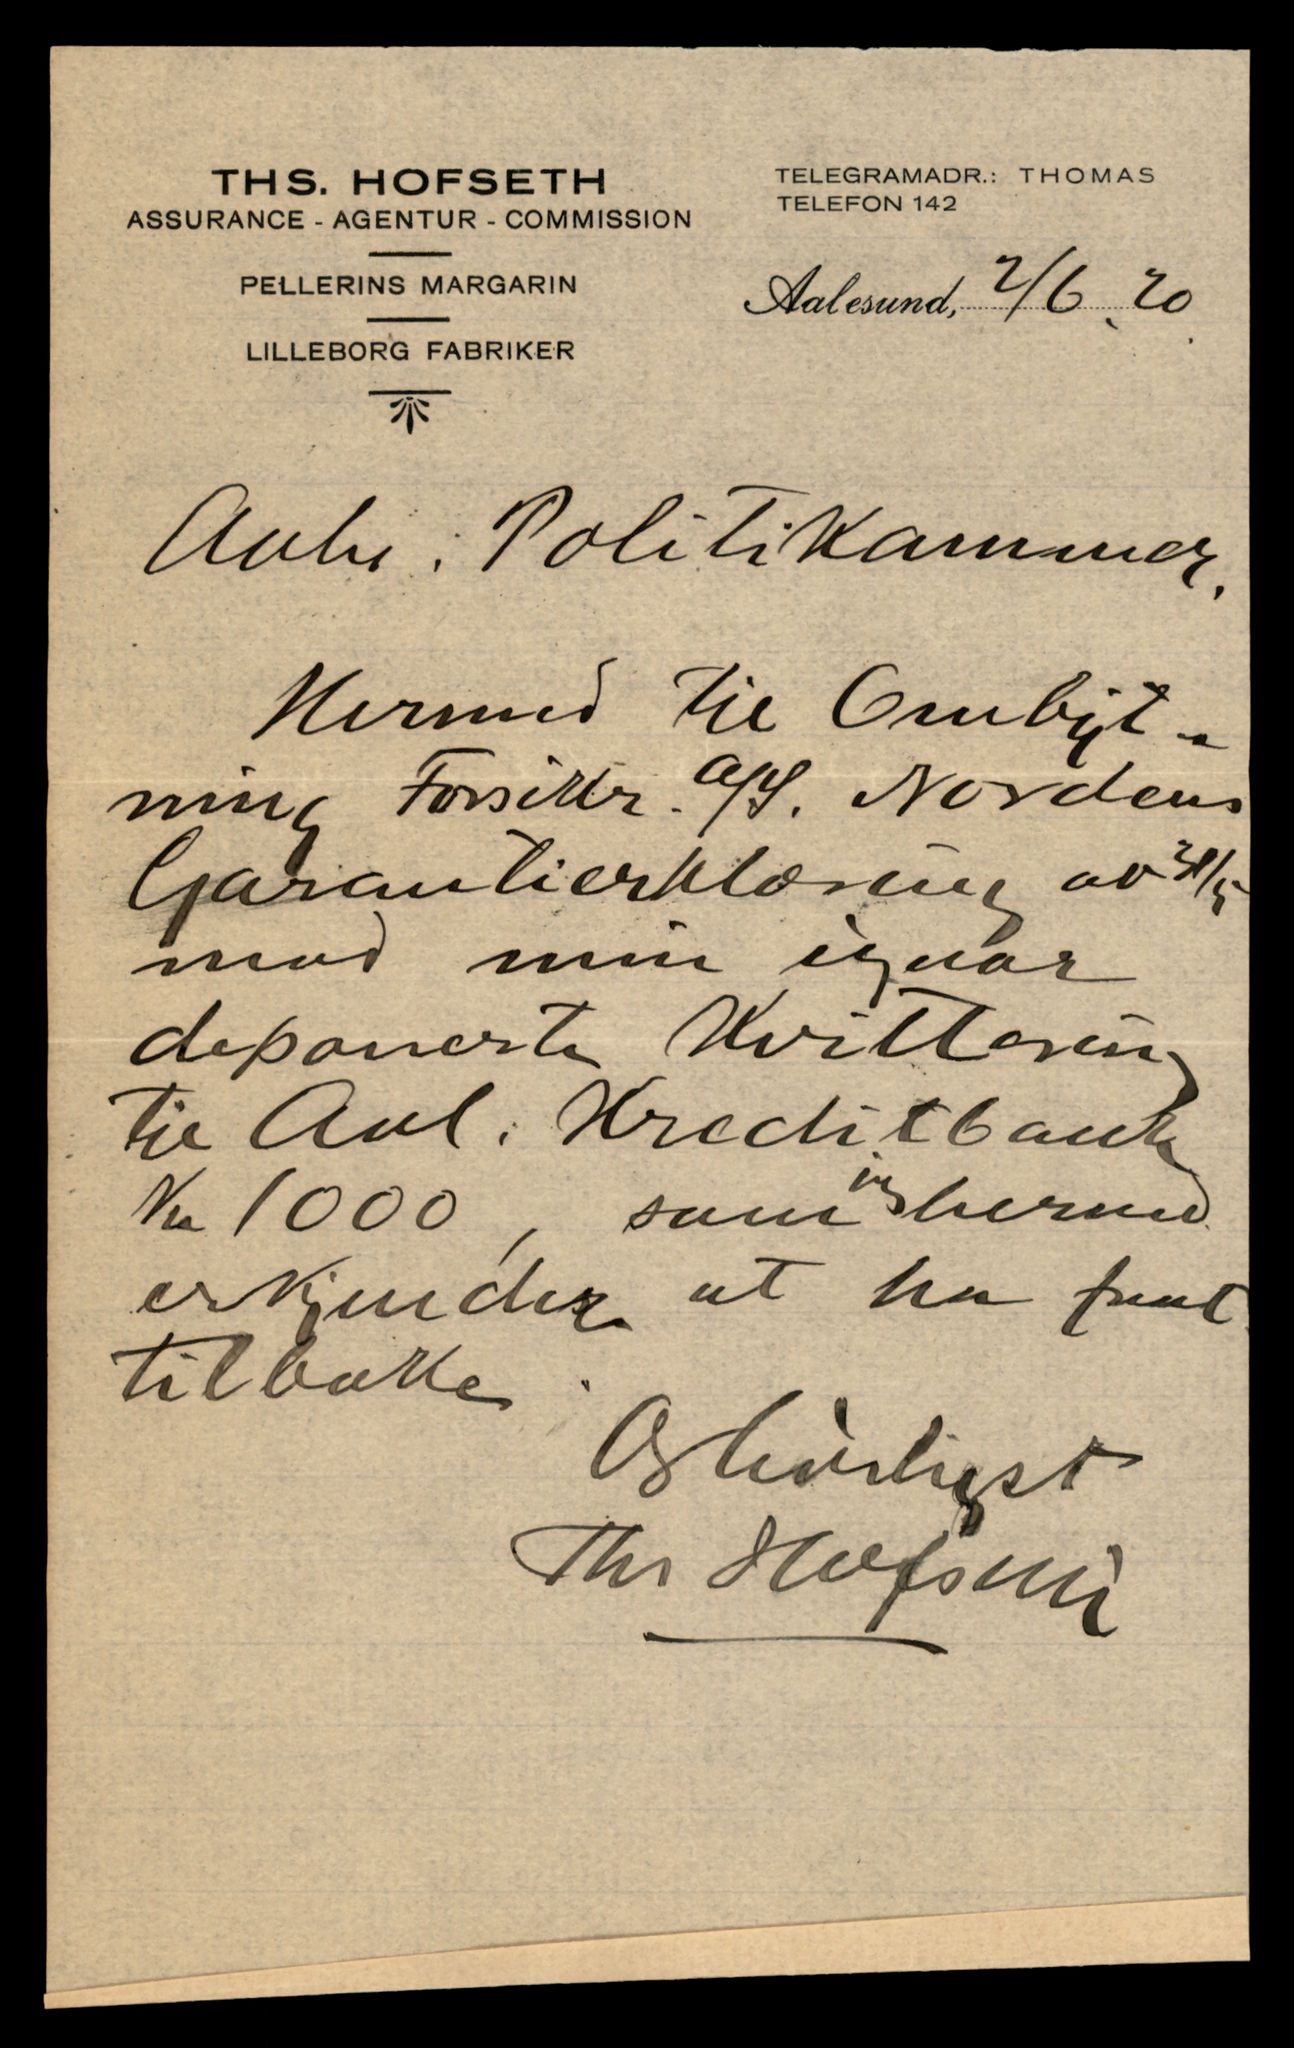 THS. HOFSETH
ASSURANCE - AGENTUR - COMMISSION
PELLERINS MARGARIN
LILLEBORG FABRIKER
TELEGRAMADR.: THOMAS
TELEFON 142
Aalesund, 2/6. 20.
Politikammer.
Hermed til Ombyt-
ning Forsikr. A/S. Nordens
Garantierklæring av
mod min igaar
deponerte Kvittering
til Aal. Kreditbank
Kr 1000, som jeg hermed
erkjender at ha faat
tilbake.
Ærbødigst
Ths Hofseth